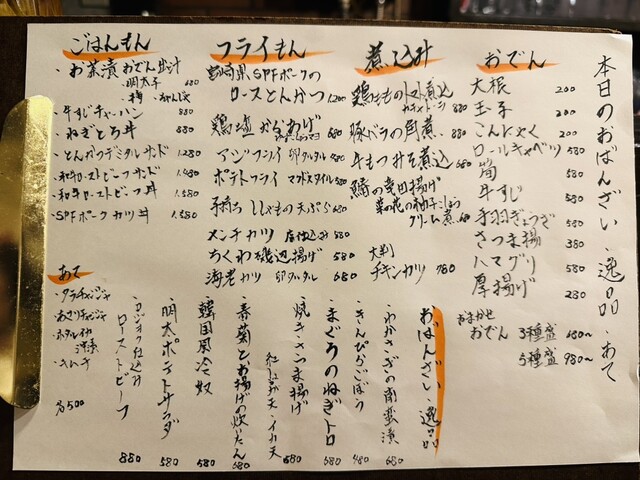 本日のおばんざい・逸品・あて
おでん
大根 200
玉子 200
こんにゃく 200
ロールキャベツ 580
筍 580
牛すじ 580
手羽ぎょうざ 580
さつま揚 380
ハマグリ 580
厚揚げ 280
おまかせ
おでん 3種盛 680〜
5種盛 980〜
煮込み
鶏ももトマト煮込
880
豚バラの角煮 880
牛もつみそ煮込 680
菜の花の柚子こしょう
クリーム煮 680
大判
チキンカツ 780
フライもん
宮崎県SPFポークの
ロースとんかつ 1,200
鶏塩からあげ 680
アジフライ 卯タルタル 580
ポテトフライ マクドスタイル 580
子持ちししゃもの天ぷら 680
メンチカツ 店仕込み 580
ちくわ磯辺揚げ 580
海老カツ 卯タルタル 680
ごはんもん
・お茶漬 おでん出汁
・明太子
・梅 680
・牛すじチャーハン 880
・ねぎとろ丼 880
・とんかつデミタルサンド 1,280
・和牛ローストビーフサンド 1,480
・和牛ローストビーフ丼 1,580
・SPFポークカツ丼 1,580
おばんざい・逸品
・わかさぎの南蛮漬 680
・きんぴらごぼう 480
・まぐろのねぎトロ 680
・焼きさつま揚げ
紅しょうが天・イカ天 580
・春菊とお揚げの炊たん 680
韓国風冷奴 580
明太ポテトサラダ 580
ローストビーフ 880
あて
・タラチャンジャ
・ホタルイカ
沖漬
・キムチ
各500